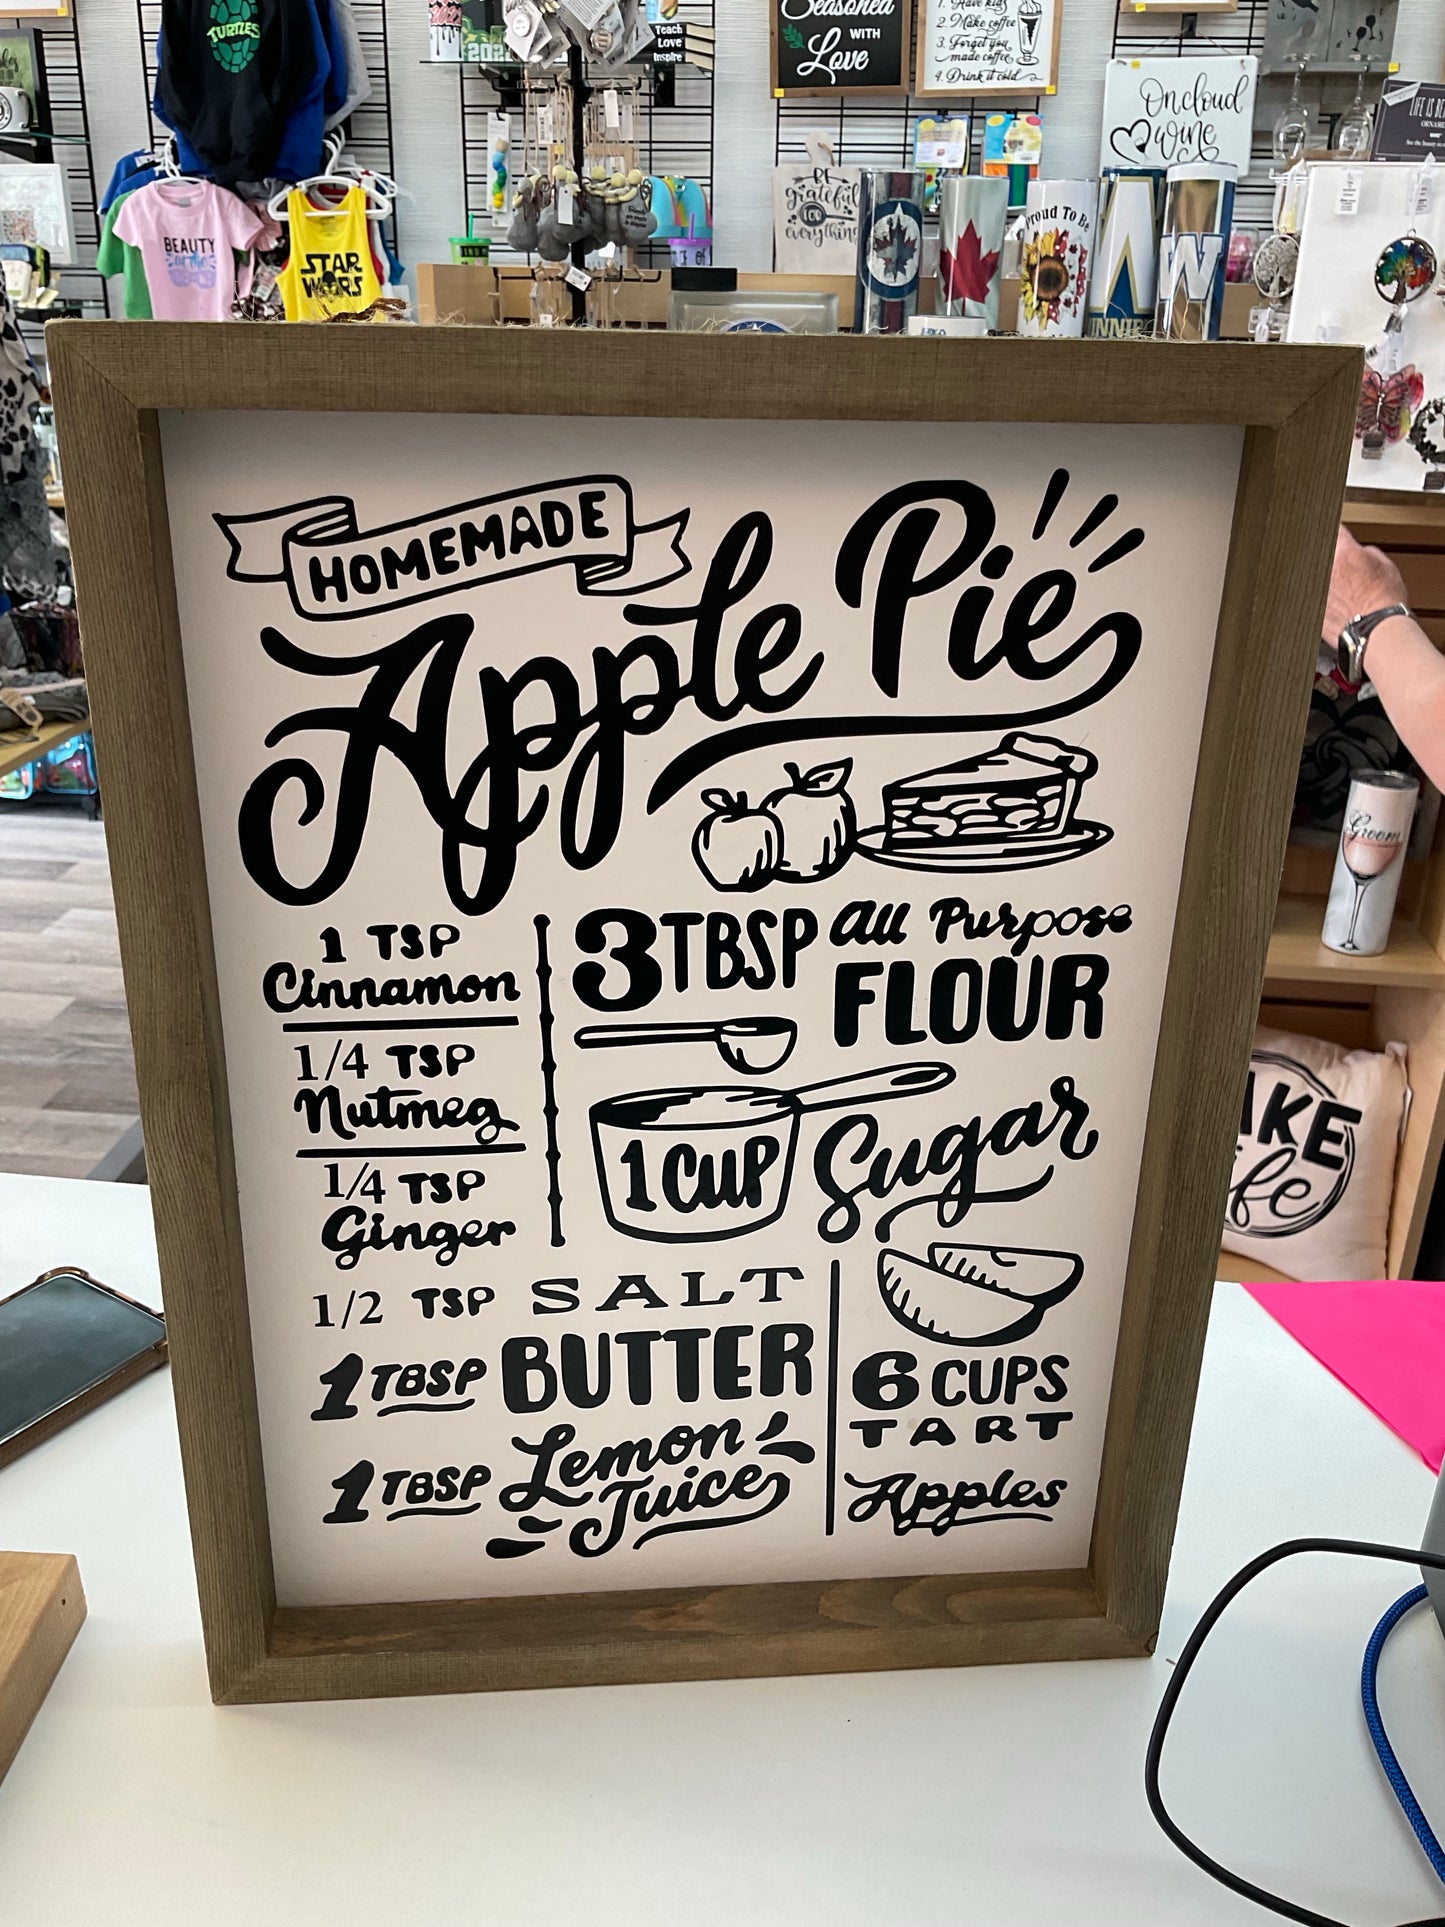 TURTLES
Teach
Love
Inspire
Seasoned
WITH
Love
2. Make coffee
3. Forget you
made coffee
4. Drink it cold
On cloud
wine
BEAUTY
STAR
WARS
BE
grateful
everything
Proud To Be
HOMEMADE
Apple Pie
1 TSP
Cinnamon
1/4 TSP
Nutmeg
1/4 TSP
Ginger
3 TBSP All Purpose
FLOUR
1 CUP Sugar
1/2 TSP SALT
1 TBSP BUTTER
1 TBSP Lemon
Juice
6 CUPS
TART
Apples
Groom